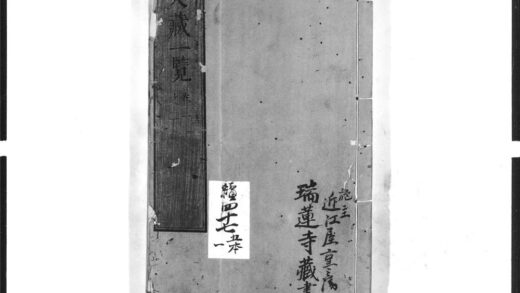 大藏一覧
瑞蓮寺藏書
施主
近江屋
經四十七
五本
一